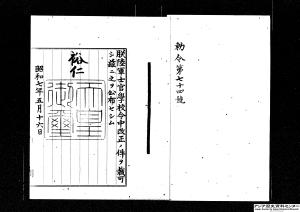 勅令第七十四號
朕陸軍士官學校令中改正ノ件ヲ裁可
シ茲ニ之ヲ公布セシム
裕仁
天皇御璽
昭和七年五月十六日
アジア歴史資料センター